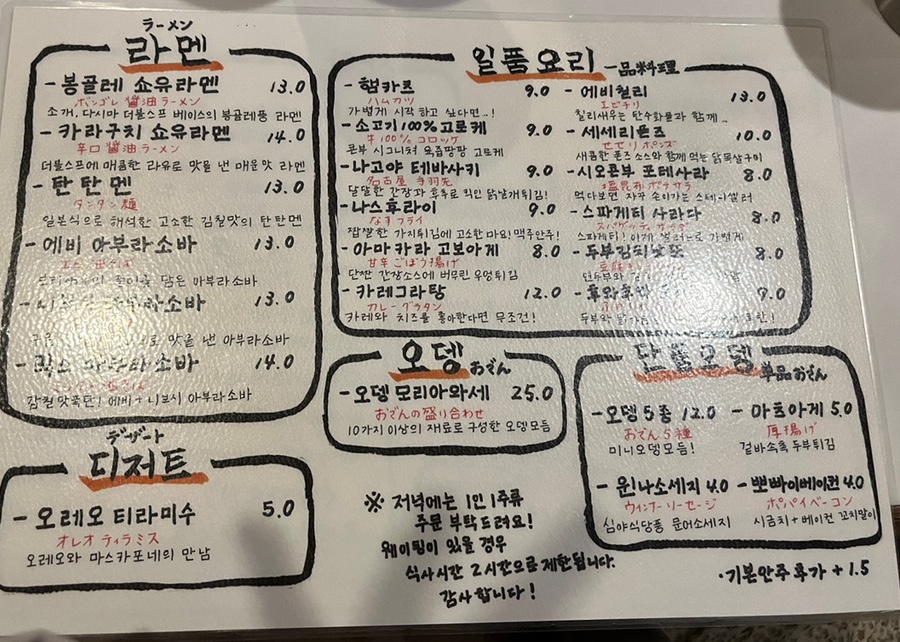 ラーメン
라멘
- 봉골레 쇼유라멘 13.0
ボンゴレ 醤油ラーメン
조개, 다시마 더블스프 베이스의 봉골레풍 라멘
- 카라구치 쇼유라멘 14.0
辛口 醤油ラーメン
더블스프에 매콤한 라유로 맛을 낸 매운맛 라멘
- 탄탄멘 13.0
タンタン麺
일본식으로 해석한 고소한 감칠맛의 탄탄멘
- 에비 아부라소바 13.0
담은 아부라소바
아부라소바 13.0
맛을 낸 아부라소바
- 믹스 아부라소바 14.0
감칠맛폭탄! 에비 + 니보시 아부라소바
デザート
디저트
- 오레오 티라미수 5.0
オレオ ティラミス
오레오와 마스카포네의 만남
일품요리 一品料理
- 햄카츠 9.0
ハムカツ
가볍게 시작하고 싶다면..!
- 소고기 100% 고로케 9.0
牛100% コロッケ
콘부 시그니처 육즙팡팡 고로케
- 나고야 테바사키 9.0
名古屋 手羽先
달달한 간장과 후추로 찍인 닭날개튀김!
- 나스후라이 9.0
なすフライ
짭짤한 가지튀김에 고소한 마요! 맥주안주!
- 아마카라 고보아게 8.0
甘辛ごぼう揚げ
단짠 간장소스에 버무린 우엉튀김
- 카레그라탕 12.0
カレーグラタン
카레와 치즈를 좋아한다면 무조건!
- 에비칠리 13.0
エビチリ
칠리새우는 탄수화물과 함께..
- 세세리폰즈 10.0
せせりポンズ
새콤한 폰즈 소스와 함께 먹는 닭목살구이
- 시오콘부 포테사라 8.0
塩昆布ポテサラ
먹다보면 자꾸 손이가는
- 스파게티 사라다 8.0
スパゲッティ サラダ
스파게티! 가볍게
- 두부김치 8.0
연두부와
7.0
두부와
오뎅 おでん
- 오뎅 모리아와세 25.0
おでんの盛り合わせ
10가지 이상의 재료로 구성한 오뎅모듬
단품오뎅 単品おでん
- 오뎅 5종 12.0
おでん5種
미니오뎅모듬!
- 아츠아게 5.0
厚揚げ
겉바속촉 두부튀김
- 윈나소세지 4.0
ウィンナーソーセージ
심야식당풍 문어소세지
- 뽀빠이베이컨 4.0
ポパイベーコン
시금치 + 베이컨 꼬치말이
※ 저녁에는 1인 1주류
주문 부탁드려요!
웨이팅이 있을 경우
식사시간 2시간으로 제한됩니다.
감사합니다!
· 기본안주 추가 + 1.5